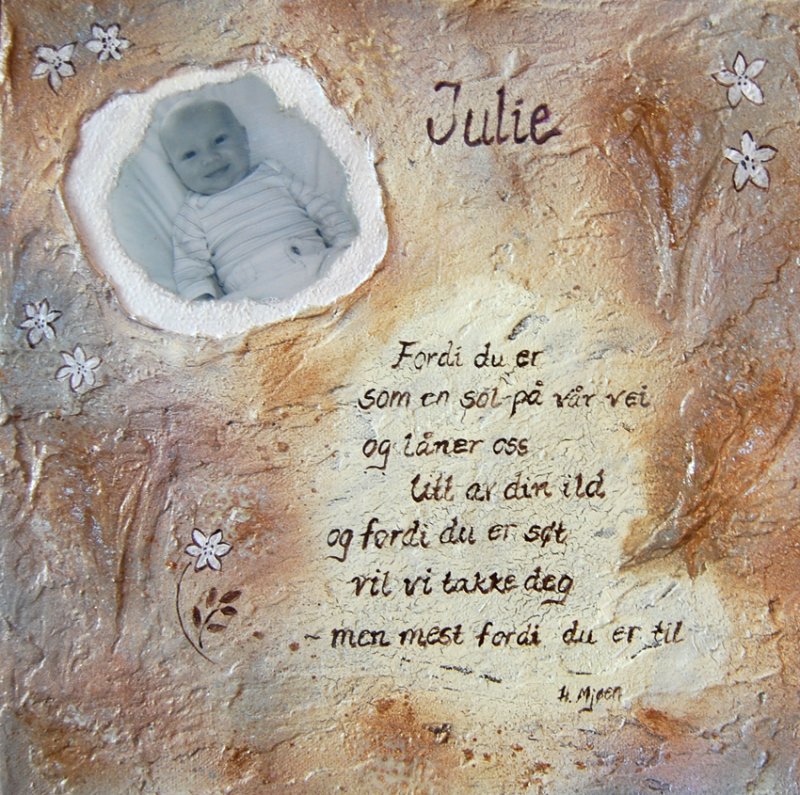 Julie
Fordi du er
som en sol på vår vei
og låner oss
litt av din ild
og fordi du er søt
vil vi takke deg
- men mest fordi du er til
H. Mjøen